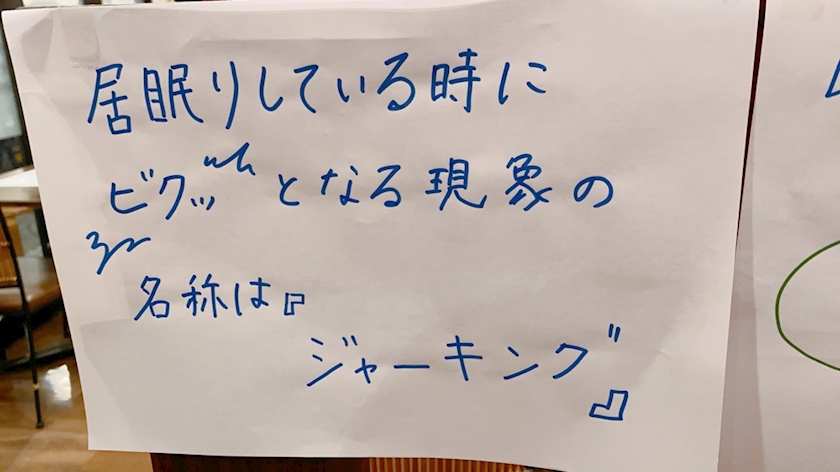 居眠りしている時に
ビクッとなる現象の
名称は『
ジャーキング』